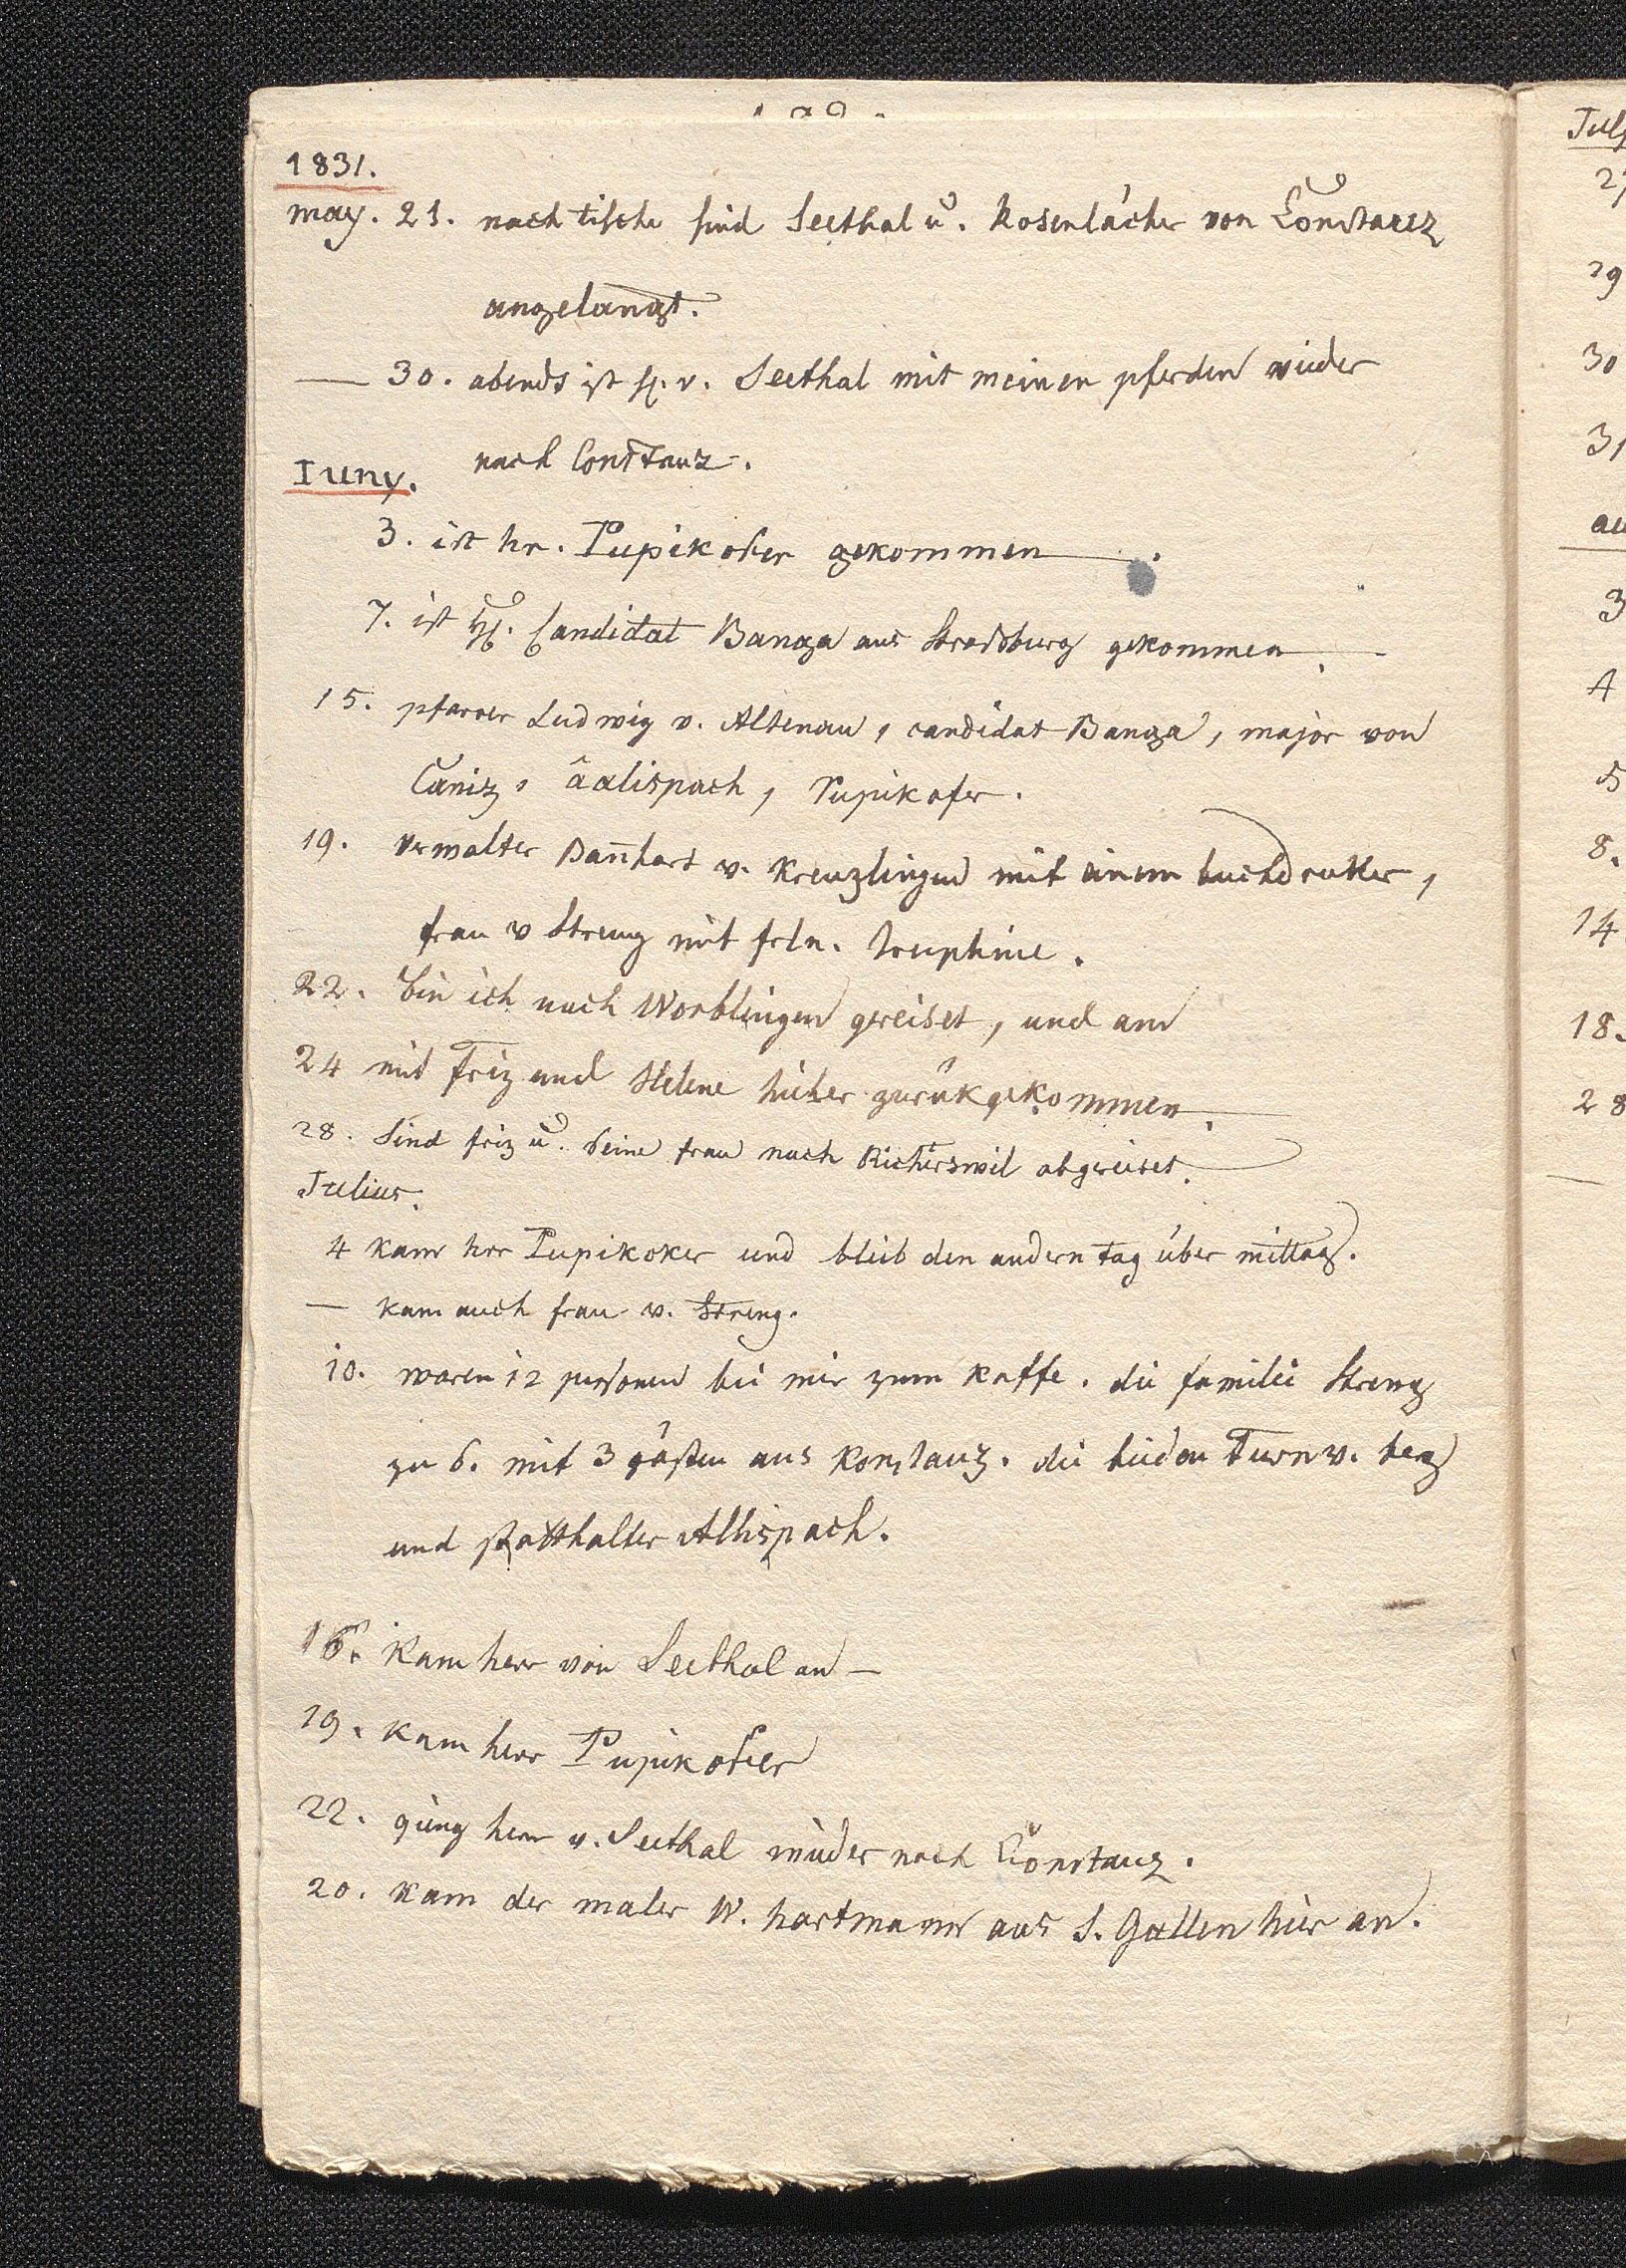 1831.
may. 21. nach tische sind Seethal u. Rosenlächer von Constanz
angelangt.
— 30. abends ist h. v. Seethal mit meinen pferden wieder
nach Constanz.
Iuny.
3. ist hr. Pupikofer gekommen — .
7. ist H. Candidat Banga aus Strassburg gekommen. —
15. pfarrer Ludwig v. Altenau, candidat Banga, major von
Caniz, âalispach, Pupikofer.
19. Verwalter Ban̄hart v. Kreuzlingen mit einem buchdruker,
frau v Streng mit frln.
22. bin ich nach Worblingen gereiset, und am
24 mit Friz und Helene hieher zurükgekommen.
28. Sind friz u. seine frau nach Richterswil abgereiset.
Julius.
4 kam herr Pupikofer und blieb den andern tag über mittag.
— kam auch frau v. Streng.
10. waren 12 personen bei mir zum kaffe. die familie Streng
zu 6. mit 3 gästen aus Konstanz. die beiden Turn v. berg
und statthalter Allispach.
16. Kam herr von Seethal an —
19. kam herr Pupikofer
22. gieng herr v. Seethal wieder nach Constanz.
20. kam der maler W. hartmann aus S. Gallen hier an.
July
27
29
30
31
au
3
4
5
8.
14.
18.
28